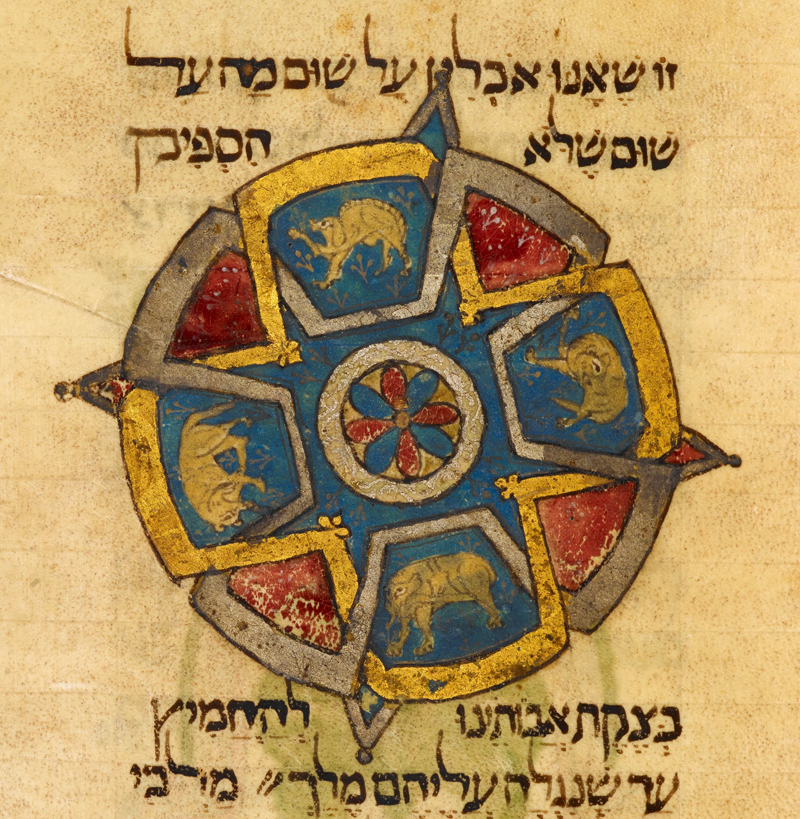 זוֹ שֶׁאָנוּ אֹכְלִין עַל שׁוּם מַה עַל
שׁוּם שֶׁלֹּא הִסְפִּיק
בְּצֵקֶת אֲבוֹתֵינוּ לְהַחֲמִיץ
עַד שֶׁנִּגְלָה עֲלֵיהֶם מֶלֶךְ מַלְכֵי